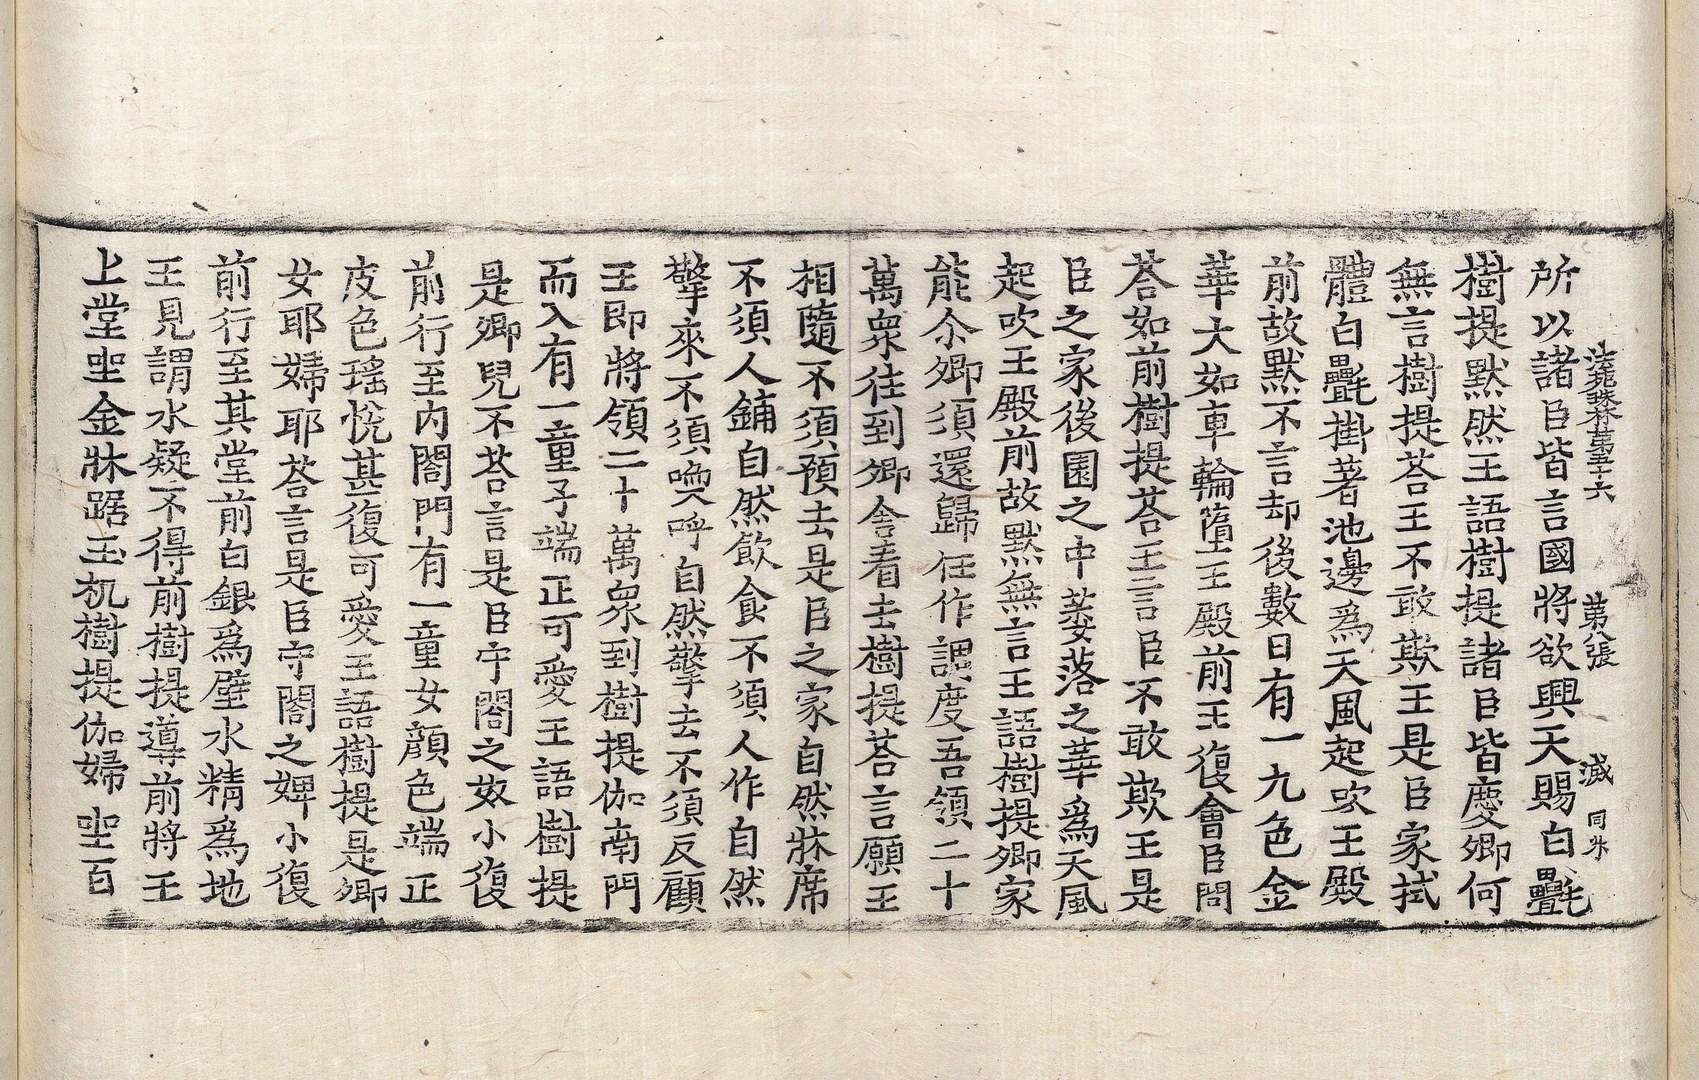 法苑珠林第五十六 第八張 滅 同外
所以諸臣皆言國將欲興天賜白㲲
樹提黙然王語樹提諸臣皆慶卿何
無言樹提荅王不敢欺王是臣家拭
體白㲲掛著池邊爲天風起吹王殿
前故黙不言却後數日有一九色金
華大如車輪墮王殿前王復會臣問
荅如前樹提荅王言臣不敢欺王是
臣之家後園之中萎落之華爲天風
起吹王殿前故黙無言王語樹提卿家
能尒卿須還歸任作調度吾領二十
萬衆往到卿舍看去樹提荅言願王
相隨不須預去是臣之家自然牀席
不須人鋪自然飮食不須人作自然
擎來不須喚呼自然擎去不須反顧
王即將領二十萬衆到樹提伽南門
而入有一童子端正可愛王語樹提
是卿兒不荅言是臣守閤之奴小復
前行至內閤門有一童女顏色端正
皮色瑤悅甚復可愛王語樹提是卿
女耶婦耶荅言是臣守閤之婢小復
前行至其堂前白銀爲壁水精爲地
王見謂水疑不得前樹提導前將王
上堂坐金牀踞玉机樹提伽婦坐百